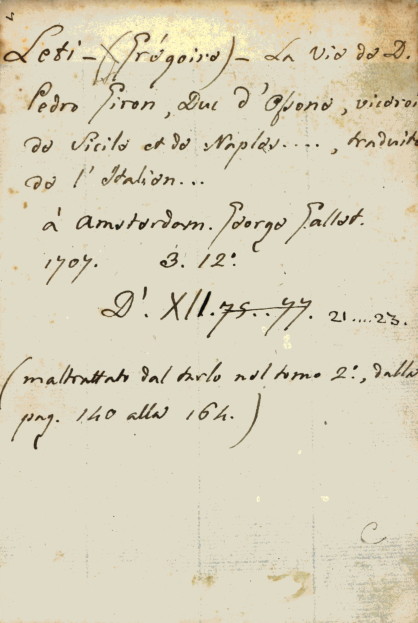 Leti - (Grégoire) - La vie de D.
Pedro Giron, Duc d'Ossone, viceroi
de Sicile et de Naples...., traduite
de l'Italien...
à Amsterdam. George Gallet.
1707. 3. 12°.
D'. XII. 75...77. 21....23.
(maltrattato dal tarlo nel tomo 2°., dalla
pag. 140 alla 164.)
C